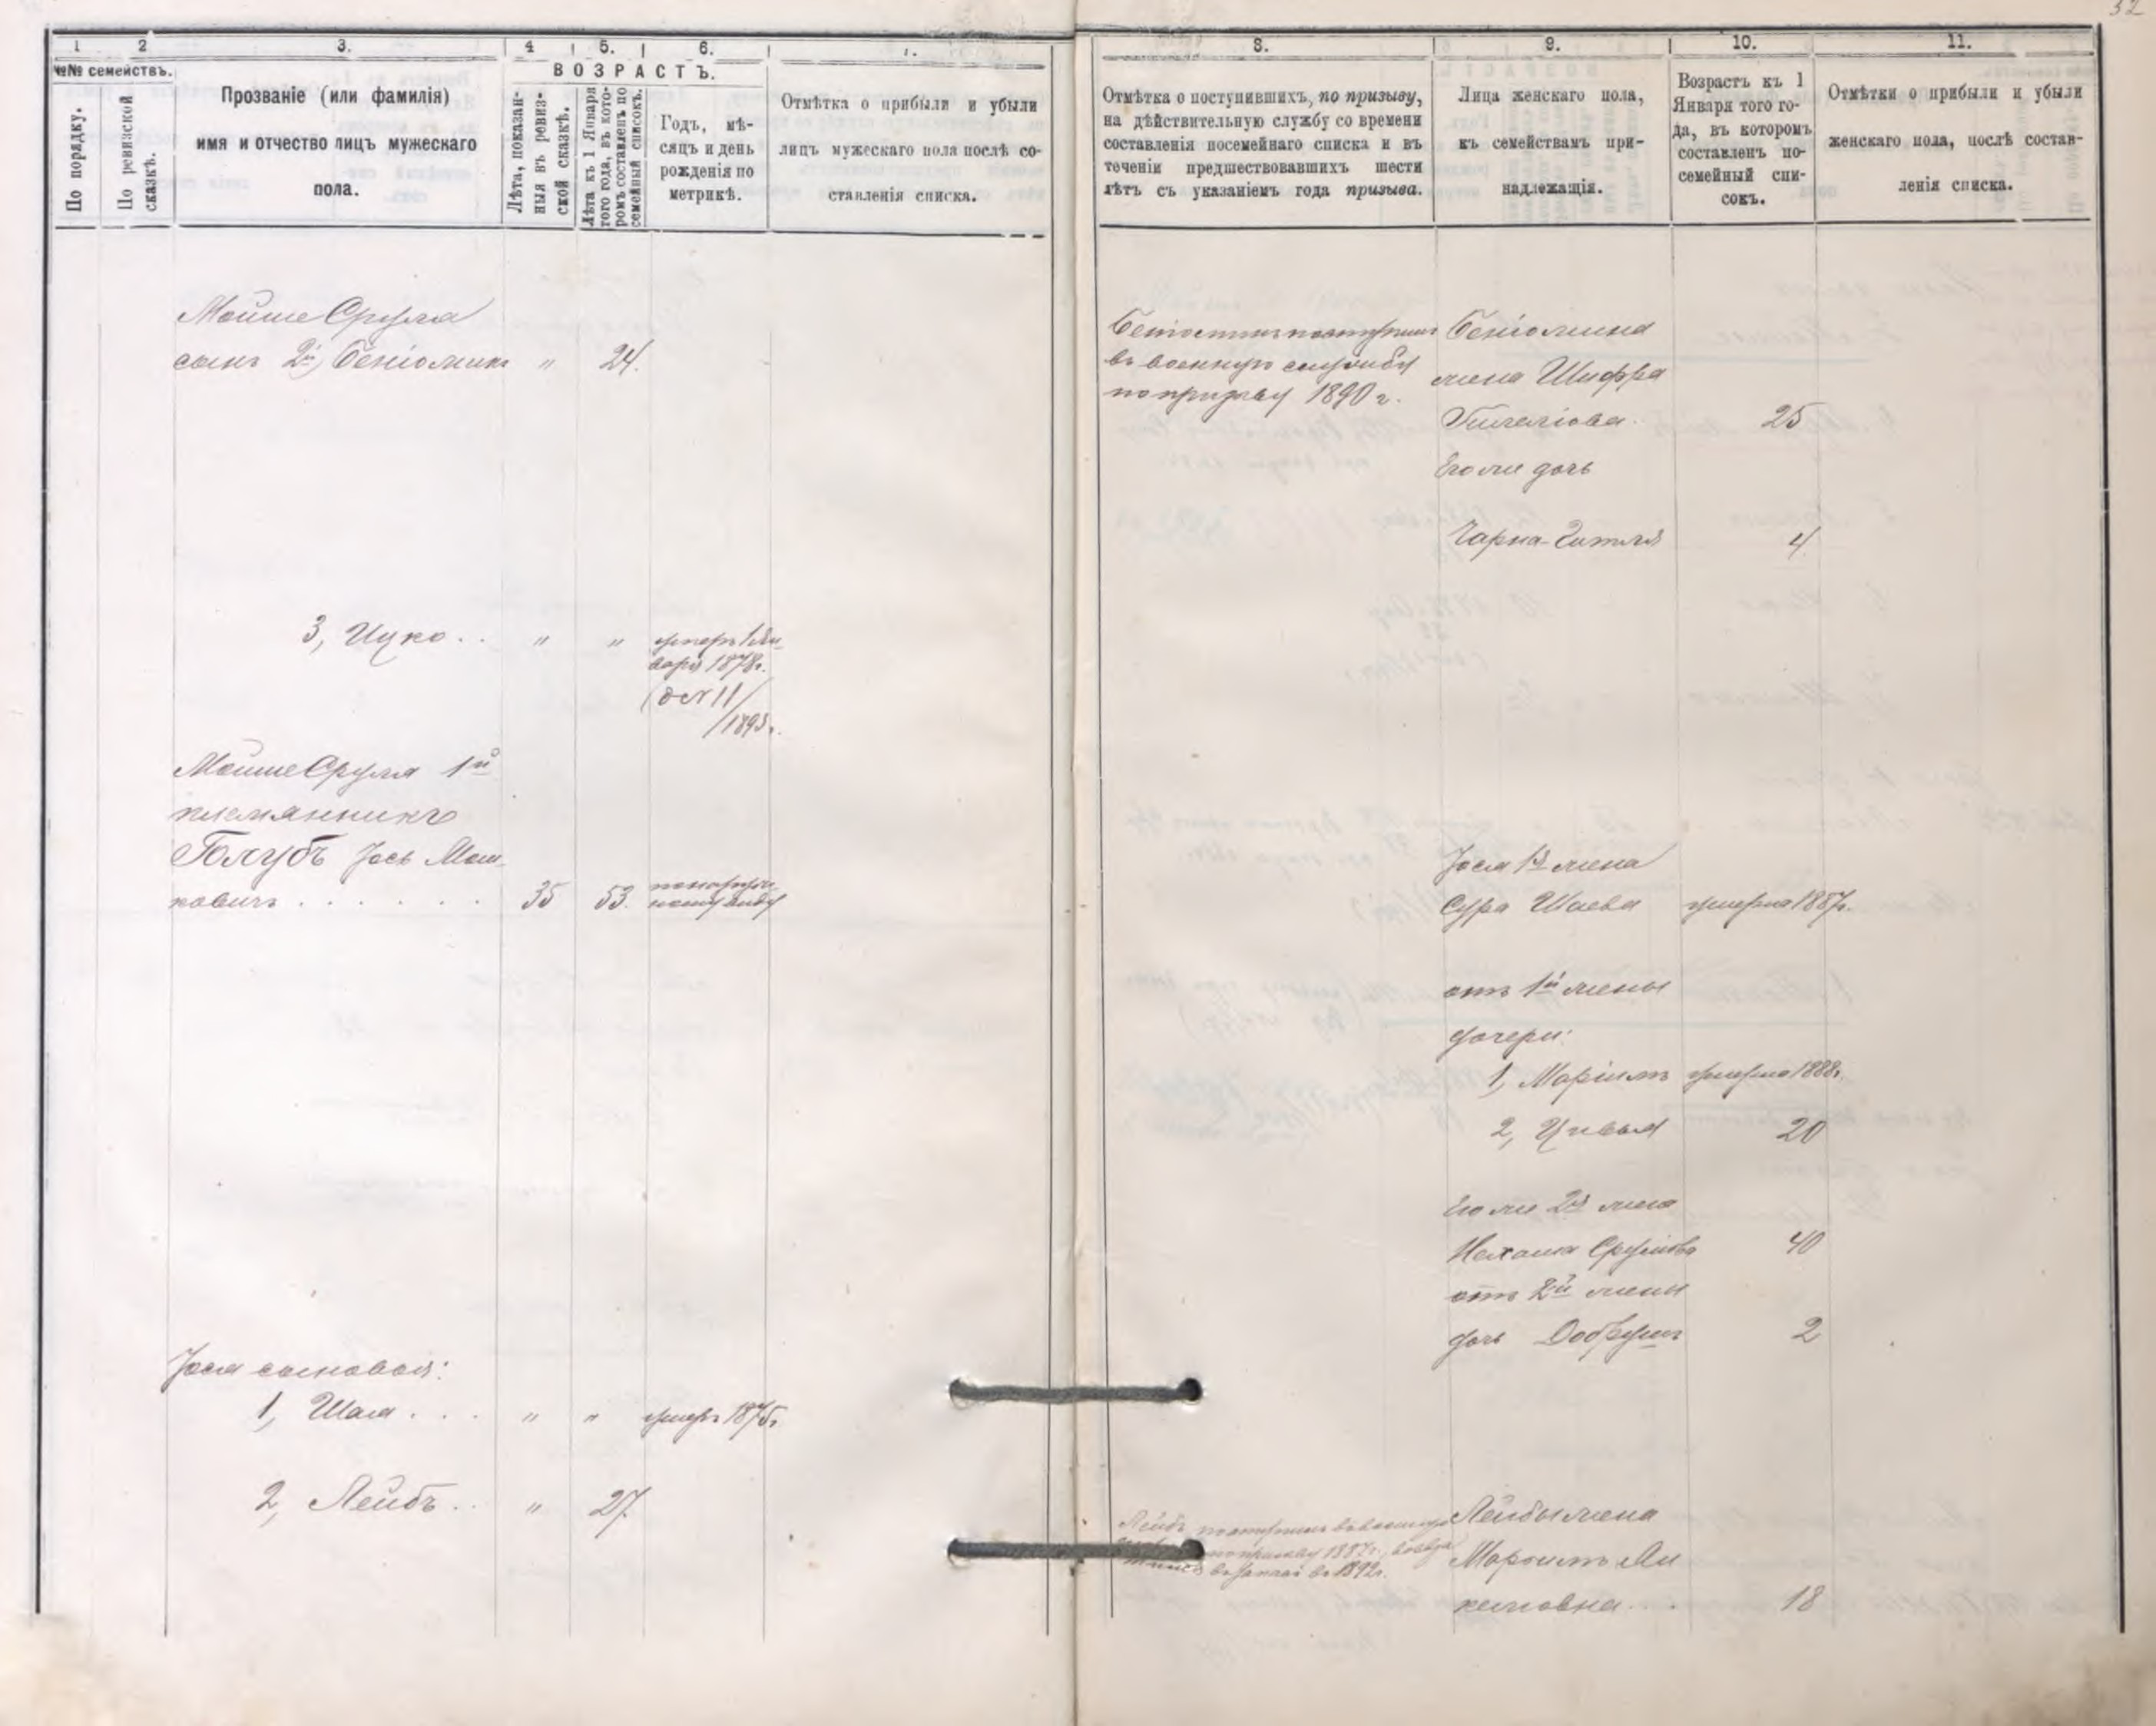 32
1
2
3.
4
5.
6.
8.
9.
10.
11.
№№ семействъ.
По порядку.
По ревизской сказкѣ.
Прозваніе (или фамилія)
имя и отчество лицъ мужескаго
пола.
ВОЗРАСТЪ.
Лѣта, показан-
ныя въ ревиз-
ской сказкѣ.
Лѣта къ 1 Января
того года, въ кото-
ромъ составленъ по
семейный списокъ.
Годъ, мѣ-
сяцъ и день
рожденія по
метрикѣ.
Отмѣтка о прибыли и убыли
лицъ мужескаго пола послѣ со-
ставленія списка.
Отмѣтка о поступившихъ, по призыву,
на дѣйствительную службу со времени
составленія посемейнаго списка и въ
теченіи предшествовавшихъ шести
лѣтъ съ указаніемъ года призыва.
Лица женскаго пола,
къ семействамъ при-
надлежащія.
Возрастъ къ 1
Января того го-
да, въ которомъ
составленъ по-
семейный спи-
сокъ.
Отмѣтки о прибыли и убыли
женскаго пола, послѣ состав-
ленія списка.
Мойше Сруля
сынъ 2й Беніоминъ " 24.
поступилъ
въ военную службу
по призыву 1890 г.
Беніомина
жена Шифра
25
Его же дочь
Чарна-Гитля 4
3, Ицко . . " " умеръ 1 Ян-
варя 1878г.
11/
/1895г.
Мойше Сруля 1й
племянникъ
Голубъ Јось Мош-
ковичъ . . . . . . 35 53.
Јося 1я жена
Сура Шаева умерла 1887г.
отъ 1й жены
дочери:
1, Маріимъ умерла 1888г.
2, Цивья 20
Его же 2я жена
Нехама Срулева 40
отъ 2й жены
дочь Добрушъ 2
Јося сыновья:
1, Шая . . . " " умеръ 1875г.
2, Лейбъ . . " 27.
Лейбъ поступилъ въ военную
по призыву 1887г.,
въ запасъ въ 1892г.
Лейбы жена
Маріимъ Ян
келевна . . . 18